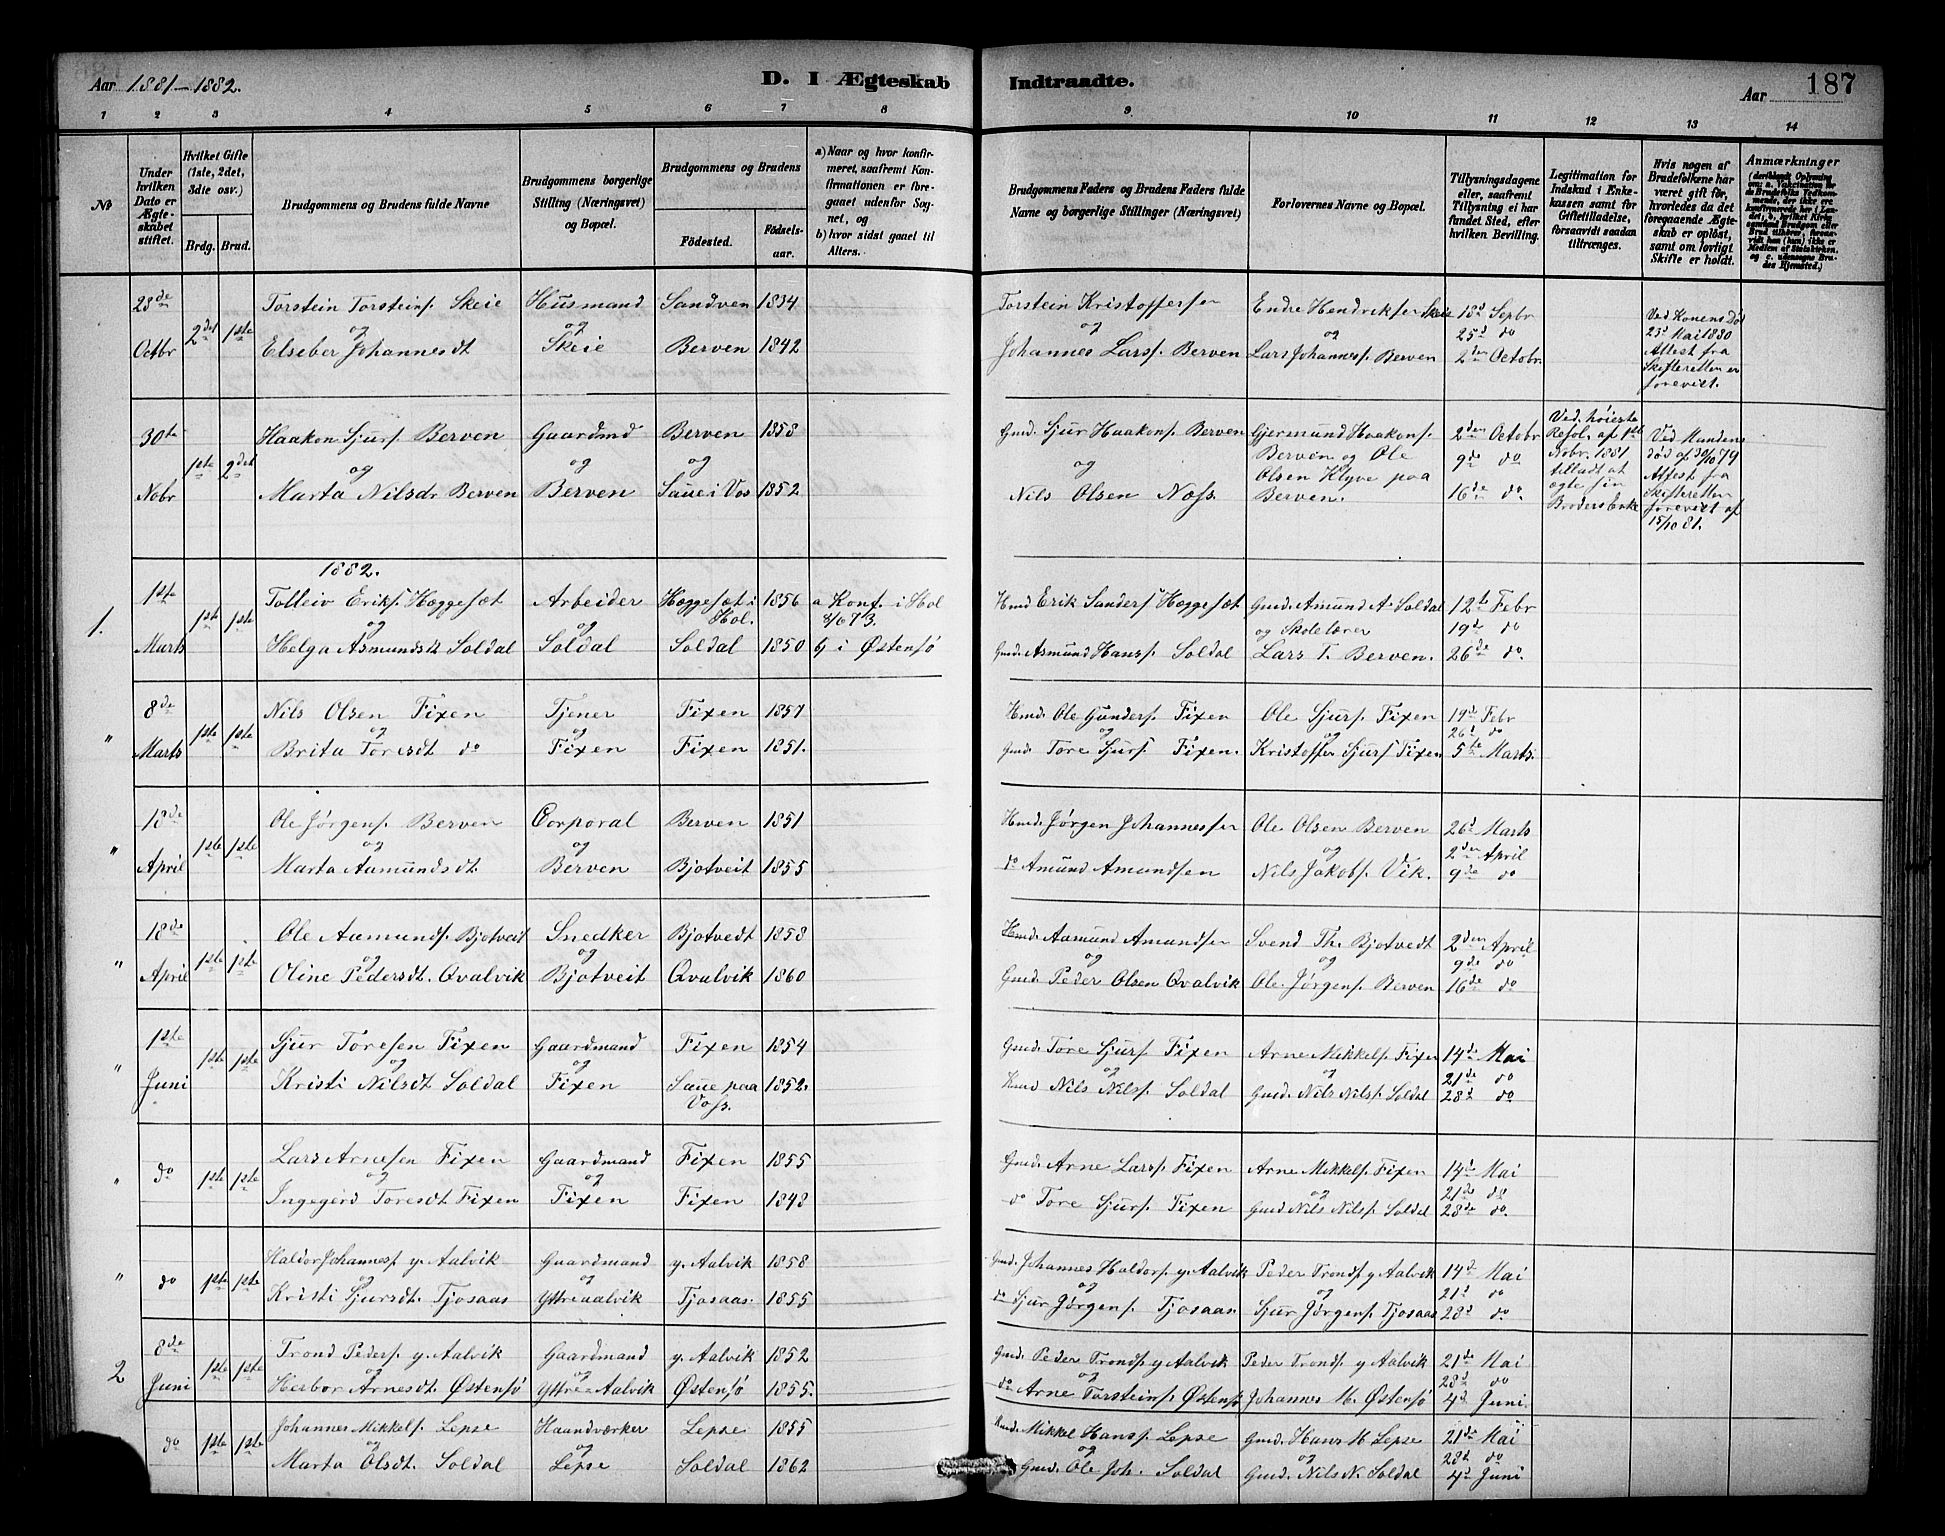 Aar 1881–1882.
D. I Ægteskab Indtraadte.
Aar 187
1 2 3 4 5 6 7 8 9 10 11 12 13 14
No
Under hvilken Dato er Ægteskabet stiftet.
Hvilket Gifte (1ste, 2det, 3die osv.)
Brdg. Brud.
Brudgommens og Brudens fulde Navne
Brudgommens borgerlige Stilling (Næringsvei) og Bopæl.
Brudgommens og Brudens
Födested. Födselsaar.
a) Naar og hvor konfirmeret, saafremt Konfirmationen er foregaaet udenfor Sognet, og
b) hvor sidst gaaet til Alters.
Brudgommens Faders og Brudens Faders fulde Navne og borgerlige Stillinger (Næringsvei)
Forlovernes Navne og Bopæl.
Tillysningsdagene eller, saafremt Tillysning ei har fundet Sted, efter hvilken Bevilling.
Legitimation for Indskud i Enkekassen samt for Giftetilladelse, forsaavidt saadan tiltrænges.
Hvis nogen af Brudefolkene har været gift för, hvorledes da det foregaaende Ægteskab er oplöst, samt om lovligt Skifte er holdt.
Anmærkninger
28de Octbr 2det 1ste
Torstein Torsteins. Skeie Husmand Sandven 1834
og og
Elseber Johannesdt Skeie Berven 1842
Torstein Kristoffersen Endre Hendriksen Skeie 18d Septbr
og og 25d do
Johannes Larss. Berven Lars Johanness. Berven 2den Octobr.
Ved Konens Död
23d Mai 1880
Attest fra
Skifteretten er
forevist.
30te Nobr 1ste 2det
Haakon Sjurs. Berven Gaardmd Berven 1858
og og og
Marta Nilsdr Berven Berven Saue i Vos 1852
Gmd. Sjur Haakons. Berven Gjermund Haakons. 2den Octobr
og Berven og Ole 9de do
Nils Olsen Næss. Olsen Klyve paa Berven. 16de do
Ved høieste
Resol. af 1ste
Nobr. 1881
tilladt at
ægte sin
Broders Enke
Ved Mandens
död af 30/10 79
Attest fra
Skifteretten
forevist af
15/10 81.
1882.
1. 1ste Marts 1ste 1ste
Tolleiv Eriks. Hæggesæt Arbeider Hæggesæt i Hol. 1856 a Konf. i Hol 8/6 73.
og og
Helga Asmundsdt Soldal Soldal Soldal 1850 b i Østensö
Hmd Erik Sanders. Hæggesæt Gmd. Amund A. Soldal 12te Febr
og Skolelærer 19de do
Gmd. Asmund Hans. Soldal Lars T. Berven. 26de do.
" 8de Marts 1ste 1ste
Nils Olsen Fixen Tjener Fixen 1857
og og
Brita Toresdt do Fixen Fixen 1851.
Hmd. Ole Gunders. Fixen Ole Sjurs. Fixen 19de Febr
og og 26d do
Gmd. Tore Sjurs. Fixen. Kristoffer Sjurs. Fixen 5te Marts.
" 18de April 1ste 1ste
Ole Jørgens. Berven Corporal Berven 1851
og og
Marta Aamundsdt. Berven Bjotveit 1855
Hmd. Jørgen Johannessen Ole Olsen Berven 26d Marts
og 2den April
do Amund Amundsen Nils Jakobs. Vik. 9de do
" 18de April 1ste 1ste
Ole Aamunds. Bjotveit Snedker Bjotvedt 1858
og og
Oline Pedersdt. Qvalvik Bjotveit Qvalvik 1860
Hmd. Aamund Amundsen Svend Th. Bjotvedt 2den April
og og 9de do
Gmd. Peder Olsen Qvalvik Ole Jørgens. Berven 16de do
" 1ste Juni 1ste 1ste
Sjur Toresen Fixen Gaardmand Fixen 1854
og og
Kristi Nilsdt Soldal Fixen Saue paa Voss. 1852.
Gmd. Tore Sjurs. Fixen Arne Mikkels. Fixen 14de Mai
og og 21de do
Hmd Nils Nils. Soldal Gmd. Nils Nils. Soldal 28d do
" do 1ste 1ste
Lars Arnesen Fixen Gaardmand Fixen 1855
og og
Ingegerd Toresdt Fixen Fixen Fixen 1848
Gmd. Arne Lars. Fixen Arne Mikkels. Fixen 14d Mai
og 21de do
do Tore Sjurs. Fixen Gmd Nils Nils. Soldal 28de do.
" do 1ste 1ste
Haldor Johannes. y. Aalvik Gaardmand y. Aalvik 1858
og og
Kristi Sjursdt. Tjosaas Yttre aalvik Tjosaas. 1855
Gmd. Johannes Haldors. y. Aalvik Peder Tronds. y Aalvik 14d Mai
og 21d do
do Sjur Jørgens. Tjosaas. Sjur Jørgens. Tjosaas 28d do
2 8de Juni 1ste 1ste
Trond Peders. y. Aalvik Gaardmand y. Aalvik 1852
og og
Herbor Arnesdt. Østensö Yttre Aalvik Østensö 1855.
Gmd. Peder Tronds. y Aalvik Peder Tronds. y Aalvik 21de Mai
og 28d do
do Arne Torsteins. Østensö Johannes M. Østensö 4d Juni.
do 1ste 1ste
Johannes Mikkels. Lepse Haandværker Lepse 1855
og og
Marta Olsdt. Soldal Lepse Soldal 1862
Hmd. Mikkel Hans. Lepse Gmd. Hans M Lepse 21de Mai
og og 28d do
Gmd. Ole Joh. Soldal Gmd. Nils N. Soldal 4d Juni